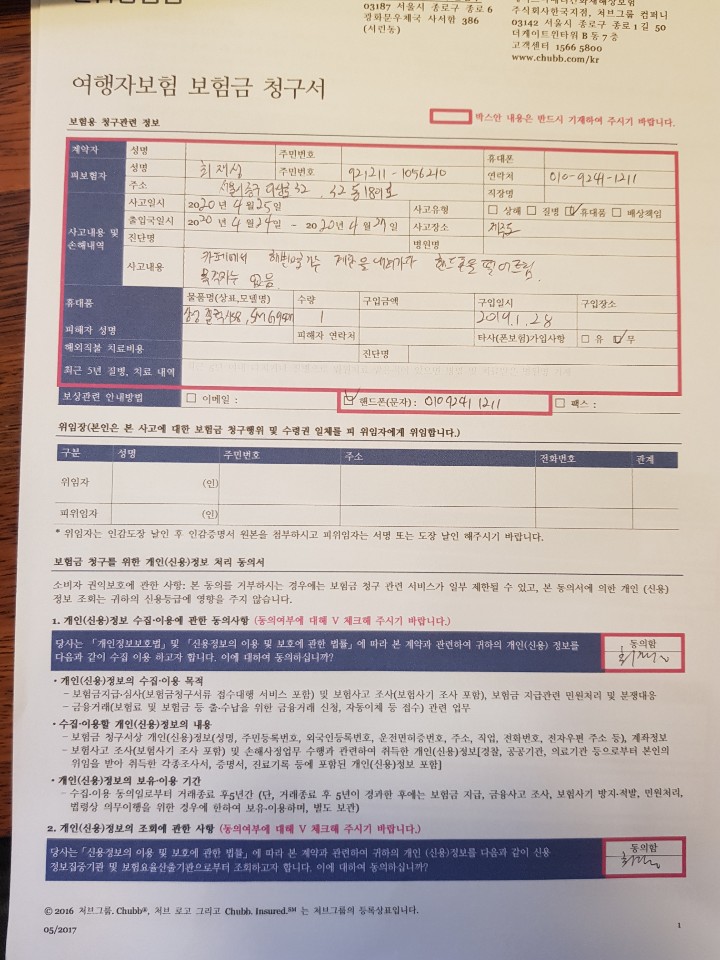 03187 서울시 종로구 종로 6
광화문우체국 사서함 386
(서린동)
주식회사한국지점, 처브그룹 컴퍼니
03142 서울시 종로구 종로1길 50
더케이트윈타워 B동 7층
고객센터 1566 5800
www.chubb.com/kr
여행자보험 보험금 청구서
보험용 청구관련 정보
박스안 내용은 반드시 기재하여 주시기 바랍니다.
계약자 성명 주민번호 휴대폰
피보험자 성명 최재성 주민번호 921211-1056210 연락처 010-9241-1211
주소 32 42동 1801호 직장명
사고내용 및 손해내역
사고일시 2020년 4월 25일 사고유형 □ 상해 □ 질병 ☑ 휴대품 □ 배상책임
출입국일시 2020년 4월 24일 - 2020년 4월 27일 사고장소 제주도
진단명 병원명
사고내용 카페에서 핸드폰을 떨어뜨림.
목격자는 없음
휴대품 물품명(상표,모델명) 수량 구입금액 구입일시 구입장소
삼성 갤럭시S8, 1 2019.1.28
피해자 성명 피해자 연락처 타사(폰보험)가입사항 □ 유 ☑ 무
해외직불 치료비용 진단명
최근 5년 질병, 치료 내역
보상관련 안내방법 □ 이메일 : ☑ 핸드폰(문자) : 010 9241 1211 □ 팩스 :
위임장(본인은 본 사고에 대한 보험금 청구행위 및 수령권 일체를 피 위임자에게 위임합니다.)
구분 성명 주민번호 주소 전화번호 관계
위임자 (인)
피위임자 (인)
* 위임자는 인감도장 날인 후 인감증명서 원본을 첨부하시고 피위임자는 서명 또는 도장 날인 해주시기 바랍니다.
보험금 청구를 위한 개인(신용)정보 처리 동의서
소비자 권익보호에 관한 사항: 본 동의를 거부하시는 경우에는 보험금 청구 관련 서비스가 일부 제한될 수 있고, 본 동의서에 의한 개인 (신용)
정보 조회는 귀하의 신용등급에 영향을 주지 않습니다.
1. 개인(신용)정보 수집·이용에 관한 동의사항 (동의여부에 대해 V 체크해 주시기 바랍니다.)
당사는 「개인정보보호법」 및 「신용정보의 이용 및 보호에 관한 법률」에 따라 본 계약과 관련하여 귀하의 개인(신용) 정보를
다음과 같이 수집 이용 하고자 합니다. 이에 대하여 동의하십니까?
동의함
• 개인(신용)정보의 수집·이용 목적
– 보험금지급·심사(보험금청구서류 접수대행 서비스 포함) 및 보험사고 조사(보험사기 조사 포함), 보험금 지급관련 민원처리 및 분쟁대응
– 금융거래(보험료 및 보험금 등 출·수납을 위한 금융거래 신청, 자동이체 등 접수) 관련 업무
• 수집·이용할 개인(신용)정보의 내용
– 보험금 청구서상 개인(신용)정보(성명, 주민등록번호, 외국인등록번호, 운전면허증번호, 주소, 직업, 전화번호, 전자우편 주소 등), 계좌정보
– 보험사고 조사(보험사기 조사 포함) 및 손해사정업무 수행과 관련하여 취득한 개인(신용)정보[경찰, 공공기관, 의료기관 등으로부터 본인의
위임을 받아 취득한 각종조사서, 증명서, 진료기록 등에 포함된 개인(신용)정보 포함]
• 개인(신용)정보의 보유·이용 기간
– 수집·이용 동의일로부터 거래종료 후5년간 (단, 거래종료 후 5년이 경과한 후에는 보험금 지급, 금융사고 조사, 보험사기 방지·적발, 민원처리,
법령상 의무이행을 위한 경우에 한하여 보유·이용하며, 별도 보관)
2. 개인(신용)정보의 조회에 관한 사항 (동의여부에 대해 V 체크해 주시기 바랍니다.)
당사는「신용정보의 이용 및 보호에 관한 법률」에 따라 본 계약과 관련하여 귀하의 개인 (신용)정보를 다음과 같이 신용
정보집중기관 및 보험요율산출기관으로부터 조회하고자 합니다. 이에 대하여 동의하십니까?
동의함
© 2016 처브그룹. Chubb®, 처브 로고 그리고 Chubb. Insured.℠ 는 처브그룹의 등록상표입니다.
05/2017
1